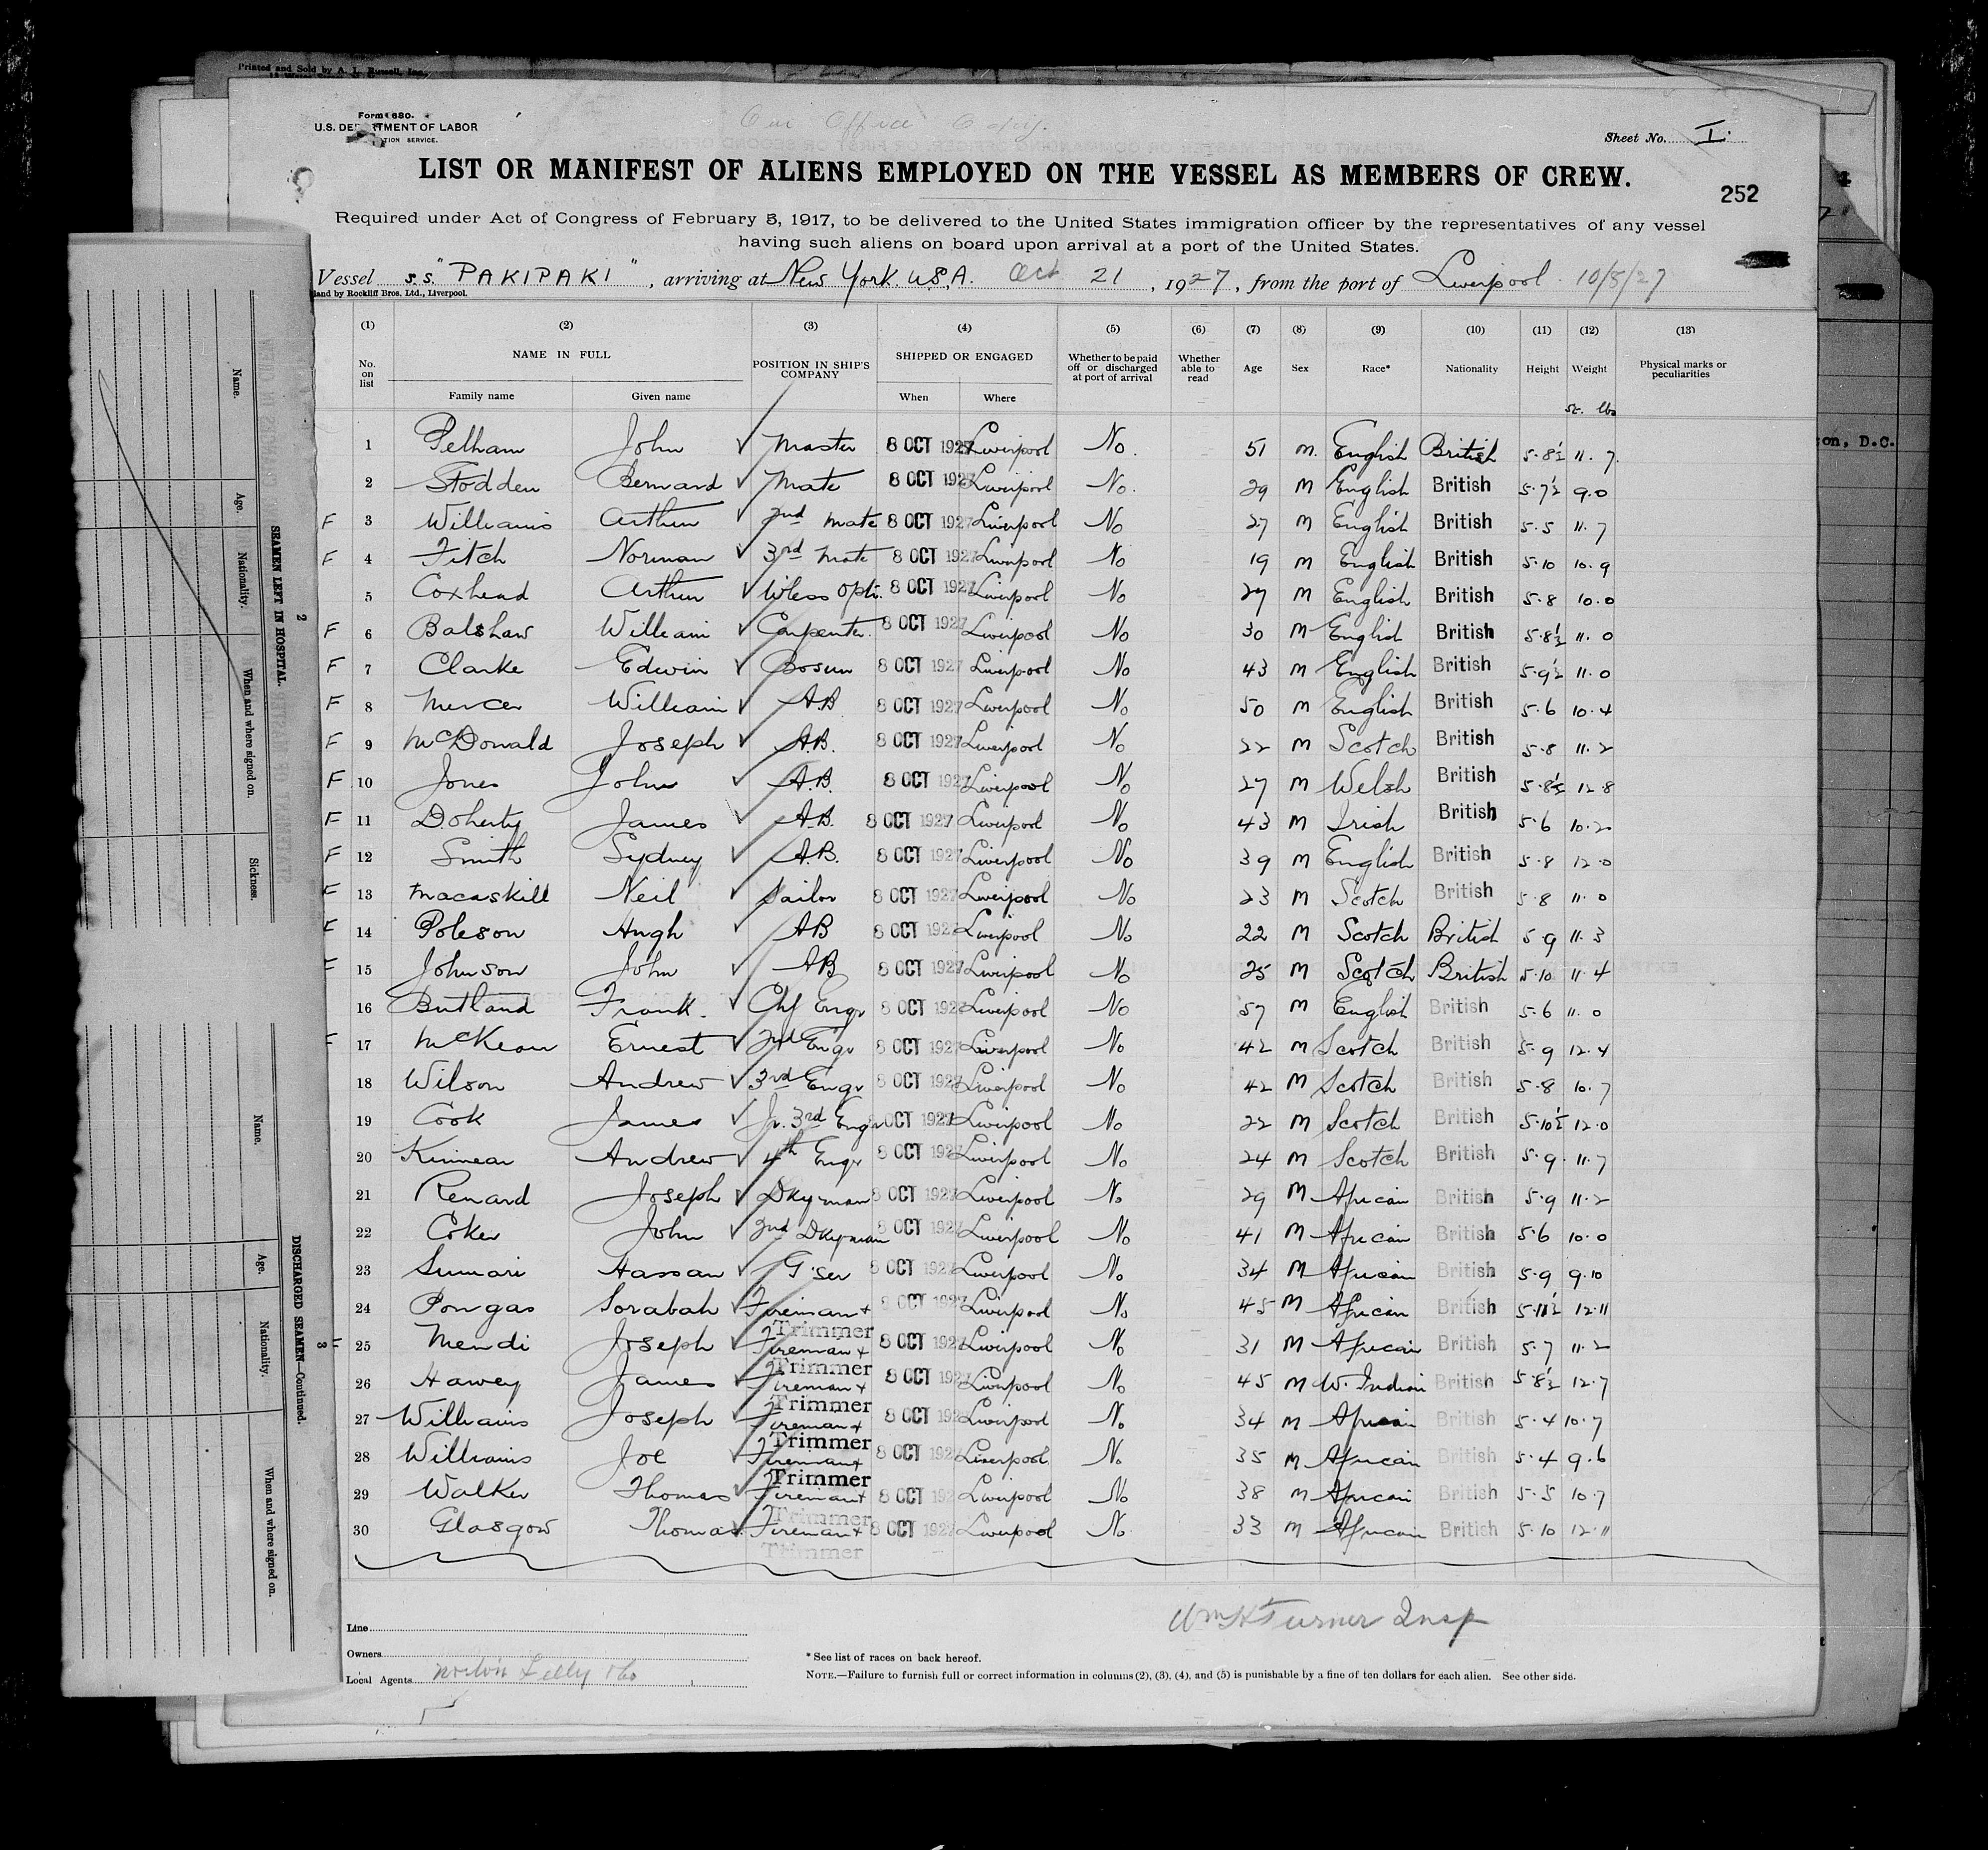 Printed and Sold by A. L. Russell, Inc.
Form 680.
U.S. DEPARTMENT OF LABOR
TION SERVICE.
Our Office Copy.
Sheet No. I.
LIST OR MANIFEST OF ALIENS EMPLOYED ON THE VESSEL AS MEMBERS OF CREW.
252
Required under Act of Congress of February 5, 1917, to be delivered to the United States immigration officer by the representatives of any vessel
having such aliens on board upon arrival at a port of the United States.
Vessel s.s. "PAKIPAKI", arriving at New York. U.S.A. Oct 21, 1927, from the port of Liverpool 10/8/27
land by Rockliff Bros. Ltd., Liverpool.
(1) (2) (3) (4) (5) (6) (7) (8) (9) (10) (11) (12) (13)
No. on list NAME IN FULL POSITION IN SHIP'S COMPANY SHIPPED OR ENGAGED Whether to be paid off or discharged at port of arrival Whether able to read Age Sex Race* Nationality Height Weight Physical marks or peculiarities
Family name Given name When Where
St. lbs
1 Pelham John Master 8 OCT 1927 Liverpool No. 51 M. English British 5.8½ 11.7
2 Stodden Bernard Mate 8 OCT 1927 Liverpool No. 29 M English British 5.7½ 9.0
F 3 Williams Arthur 2nd Mate 8 OCT 1927 Liverpool No 27 M English British 5.5 11.7
F 4 Fitch Norman 3rd Mate 8 OCT 1927 Liverpool No 19 M English British 5.10 10.9
5 Coxhead Arthur W'less Optr. 8 OCT 1927 Liverpool No 27 M English British 5.8 10.0
F 6 Balshaw William Carpenter. 8 OCT 1927 Liverpool No 30 M English British 5.8½ 11.0
F 7 Clarke Edwin Bosun 8 OCT 1927 Liverpool No 43 M English British 5.9½ 11.0
F 8 Mercer William AB 8 OCT 1927 Liverpool No 50 M English British 5.6 10.4
F 9 McDonald Joseph AB. 8 OCT 1927 Liverpool No 22 M Scotch British 5.8 11.2
F 10 Jones John A.B. 8 OCT 1927 Liverpool No 27 M Welsh British 5.8½ 12.8
F 11 Doherty James A.B. 8 OCT 1927 Liverpool No 43 M Irish British 5.6 10.2
F 12 Smith Sydney A.B. 8 OCT 1927 Liverpool No 39 M English British 5.8 12.0
F 13 Macaskill Neil Sailor 8 OCT 1927 Liverpool No 23 M Scotch British 5.8 11.0
F 14 Poleson Hugh AB 8 OCT 1927 Liverpool No 22 M Scotch British 5.9 11.3
F 15 Johnson John AB 8 OCT 1927 Liverpool No 25 M Scotch British 5.10 11.4
16 Butland Frank. Chf Engr 8 OCT 1927 Liverpool No 57 M English British 5.6 11.0
F 17 McKeown Ernest 2nd Engr 8 OCT 1927 Liverpool No 42 M Scotch British 5.9 12.4
18 Wilson Andrew 3rd Engr 8 OCT 1927 Liverpool No 42 M Scotch British 5.8 10.7
19 Cook James Jr. 3rd Engr 8 OCT 1927 Liverpool No 22 M Scotch British 5.10½ 12.0
20 Kinnear Andrew 4th Engr 8 OCT 1927 Liverpool No 24 M Scotch British 5.9 11.7
21 Renard Joseph Dkyman 8 OCT 1927 Liverpool No 29 M African British 5.9 11.2
22 Coker John 2nd Dkyman 8 OCT 1927 Liverpool No 41 M African British 5.6 10.0
23 Sumari Hassan G'ser 8 OCT 1927 Liverpool No 34 M African British 5.9 9.10
24 Pongas Sorabah Fireman + Trimmer 8 OCT 1927 Liverpool No 45 M African British 5.11½ 12.11
F 25 Mendi Joseph Fireman + Trimmer 8 OCT 1927 Liverpool No 31 M African British 5.7 11.2
26 James Fireman + Trimmer 8 OCT 1927 Liverpool No 45 M W. Indian British 5.8½ 12.7
27 Williams Joseph Fireman + Trimmer 8 OCT 1927 Liverpool No 34 M African British 5.4 10.7
28 Williams Joe Fireman + Trimmer 8 OCT 1927 Liverpool No 35 M African British 5.4 9.6
29 Walker Thomas Fireman + Trimmer 8 OCT 192 Liverpool No 38 M African British 5.5 10.7
30 Glasgow Thomas Fireman + Trimmer 8 OCT 1927 Liverpool No 33 M African British 5.10 12.11
Wm H Turner Insp
Line
Owners
Local Agents Norton Lilly & Co
* See list of races on back hereof.
NOTE.—Failure to furnish full or correct information in columns (2), (3), (4), and (5) is punishable by a fine of ten dollars for each alien. See other side.
2
SEAMEN LEFT IN HOSPITAL.
Name. Age. Nationality. When and where signed on. Sickness.
3
DISCHARGED SEAMEN—Continued.
Name. Age. Nationality. When and where signed on.
on, D.C.